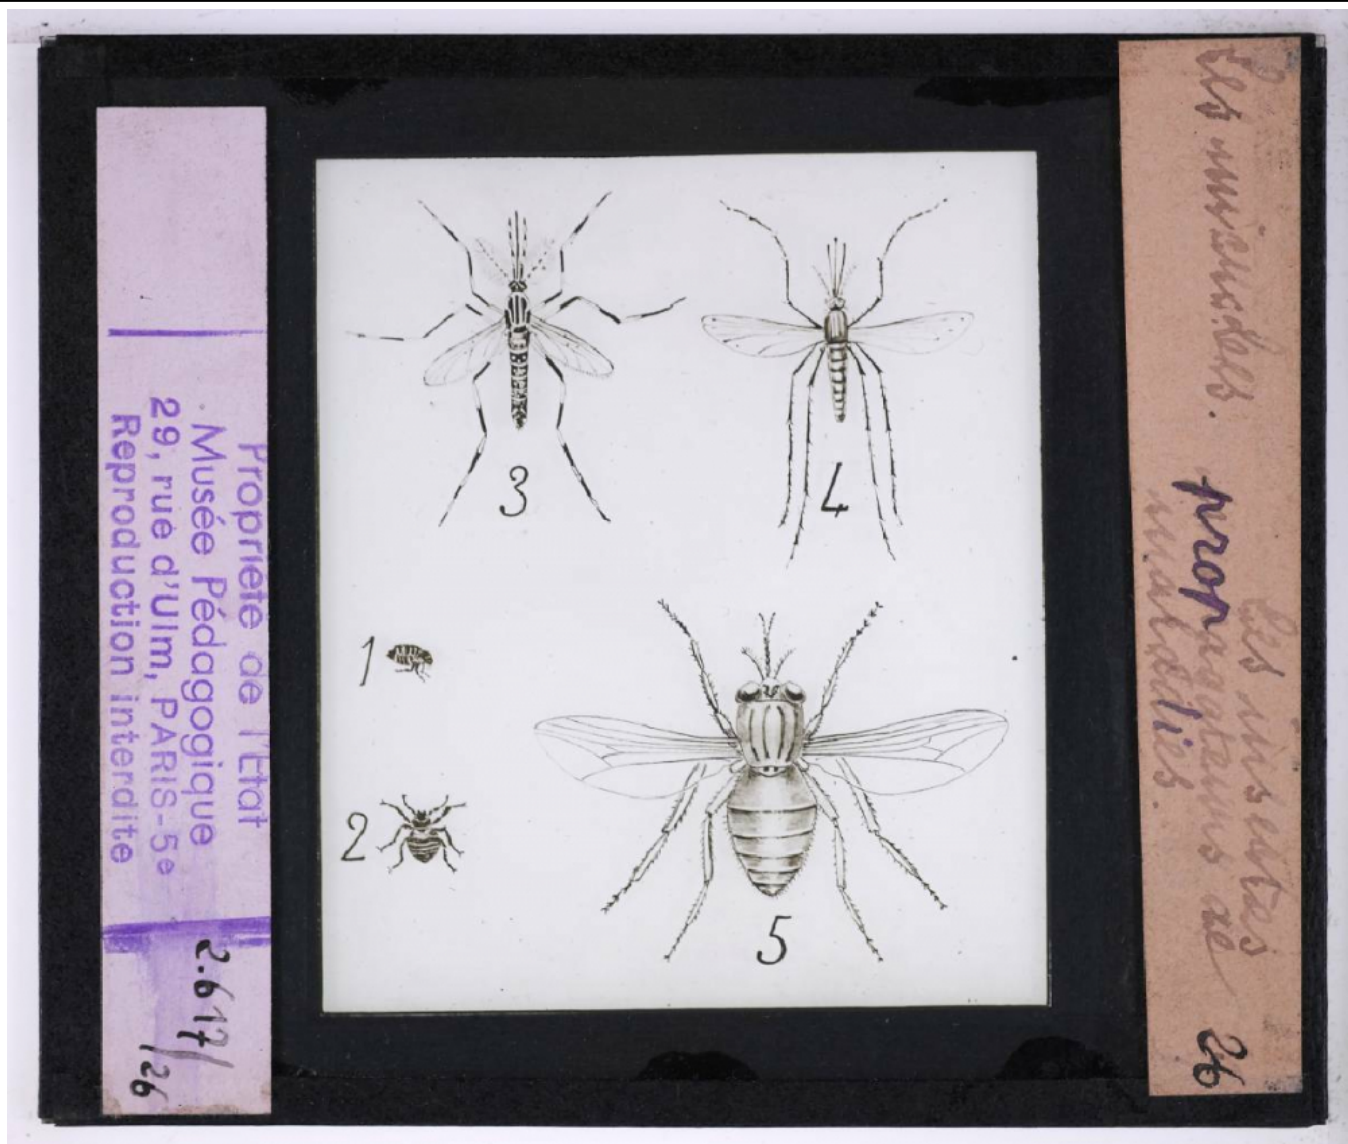 Propriété de l'Etat
Musée Pédagogique
29, rue d'Ulm, PARIS-5e
Reproduction interdite
2.617/
126
3
4
1
2
5
Les microbes.
Les insectes
propagateurs de
maladies.
26